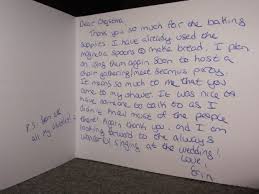 Dear Christina,
Thank you so much for the baking
supplies I have already used the
magnetic spoons to make bread, I plan
on using them again soon to host a
choir gathering meet become party.
It means so much to me that you
came to my shower. It was nice to
have someone to talk to as I
didn't know most of the people
there! Again thank you, and I am
looking forward to the always
wonderful singing at the wedding!
Love,
Erin
P.S.
all my